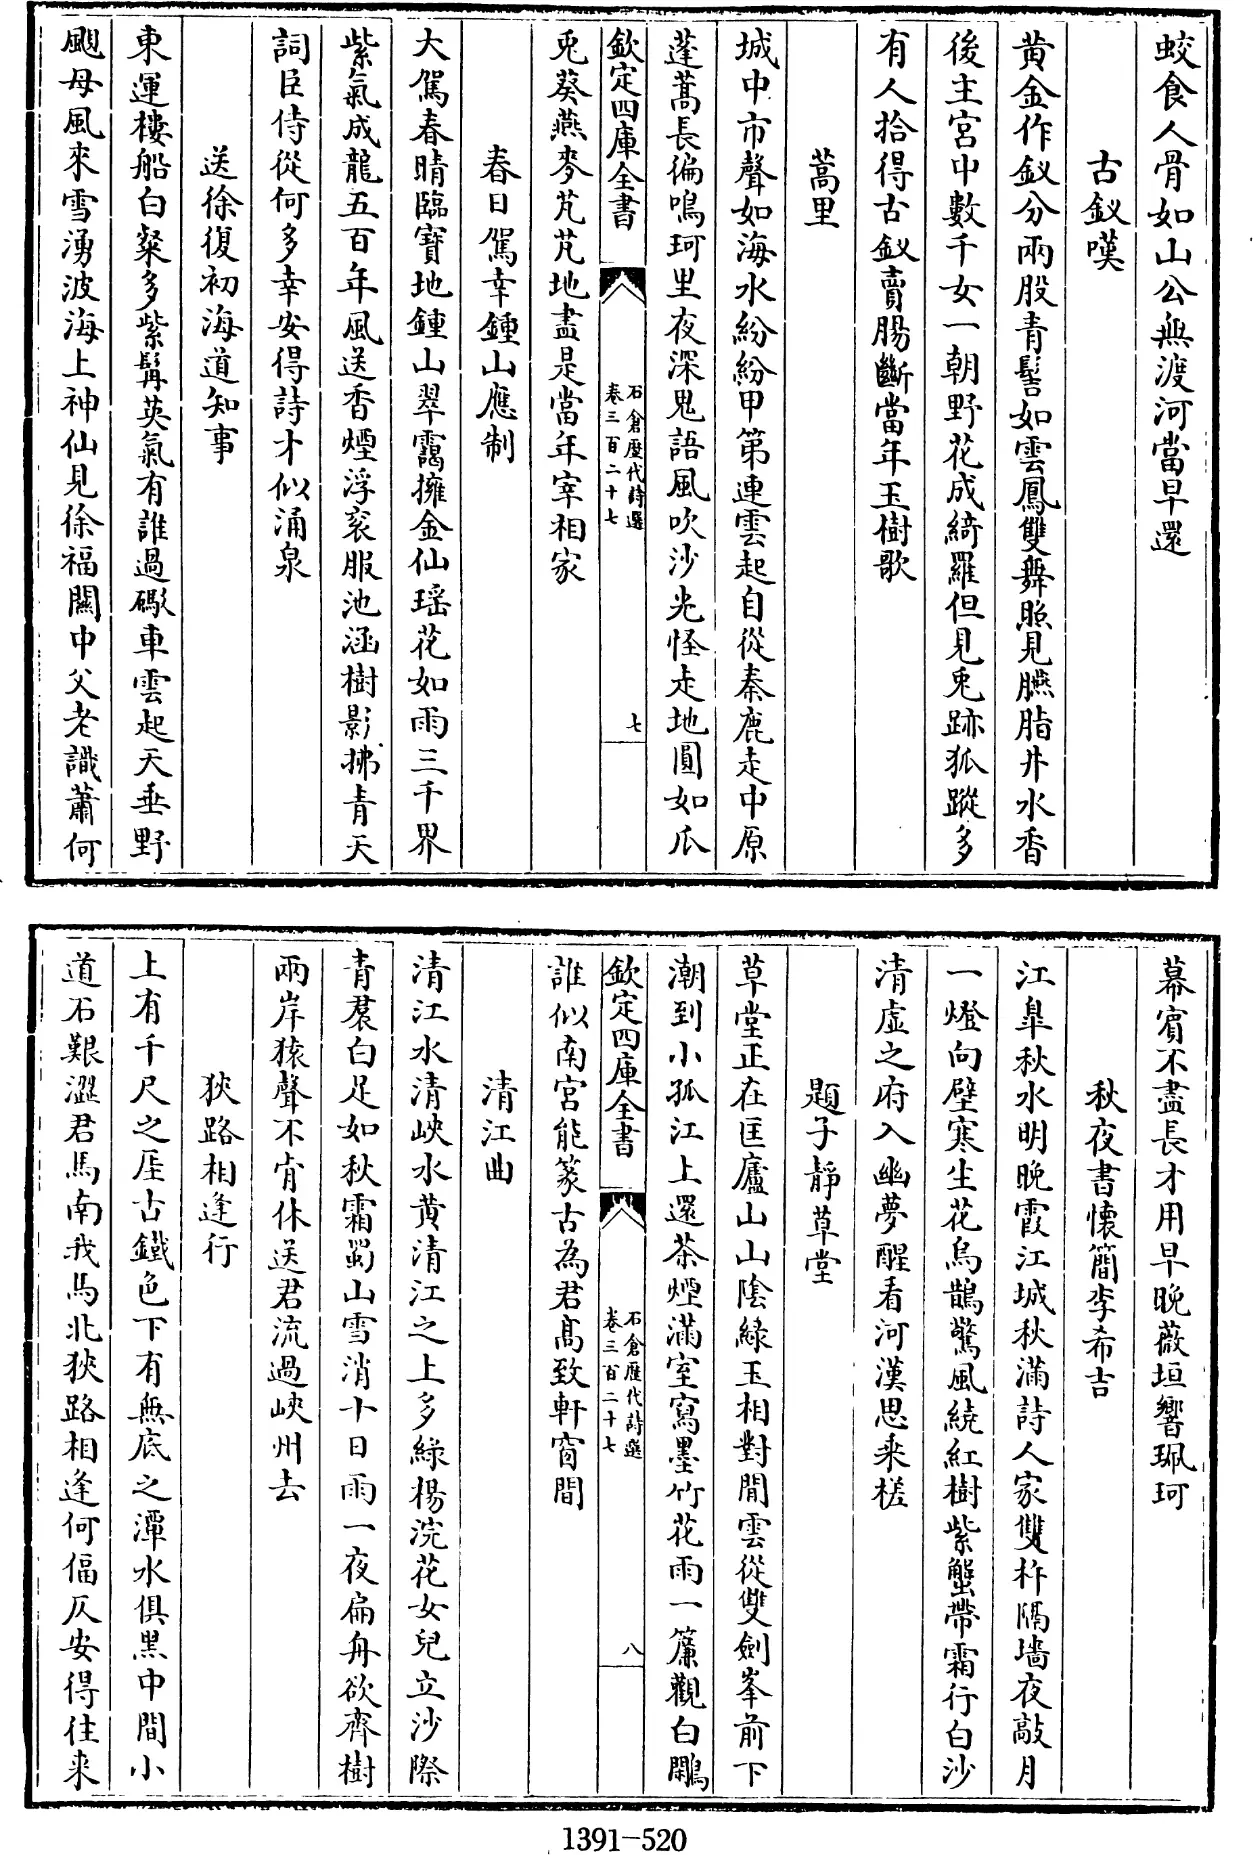 蛟食人骨如山公無渡河當早還
古釵嘆
黄金作釵分兩股青髻如雲鳳雙舞照見臙脂井水香
後主宮中數千女一朝野花成綺羅但見兎跡狐蹤多
有人拾得古釵賣腸斷當年玉樹歌
蒿里
城中市聲如海水紛紛甲第連雲起自從秦鹿走中原
蓬蒿長徧鳴珂里夜深鬼語風吹沙光怪走地圓如瓜
欽定四庫全書
石倉歷代詩選
卷三百二十七
七
兎葵燕麥芃芃地盡是當年宰相家
春日駕幸鍾山應制
大駕春晴臨寶地鍾山翠靄擁金仙瑶花如雨三千界
紫氣成龍五百年風送香煙浮衮服池涵樹影拂青天
詞臣侍從何多幸安得詩才似涌泉
送徐復初海道知事
東運樓船白粲多紫髯英氣有誰過礮車雲起天垂野
颶母風來雪湧波海上神仙見徐福關中父老識蕭何
幕賓不盡長才用早晚薇垣響珮珂
秋夜書懷簡李希吉
江臯秋水明晚霞江城秋滿詩人家雙杵隔墻夜敲月
一燈向壁寒生花烏鵲驚風繞紅樹紫蟹帶霜行白沙
清虛之府入幽夢醒看河漢思乘槎
題子靜草堂
草堂正在匡廬山山陰緑玉相對閒雲從雙劍峯前下
潮到小孤江上還茶煙滿室寫墨竹花雨一簾觀白鷴
欽定四庫全書
石倉歷代詩選
卷三百二十七
八
誰似南宮能篆古為君髙致軒窗間
清江曲
清江水清峽水黄清江之上多緑楊浣花女兒立沙際
青裠白足如秋霜蜀山雪消十日雨一夜扁舟欲齊樹
兩岸猿聲不肯休送君流過峽州去
狹路相逢行
上有千尺之厓古鐵色下有無底之潭水俱黒中間小
道石艱澀君馬南我馬北狹路相逢何偪仄安得往来
1391-520